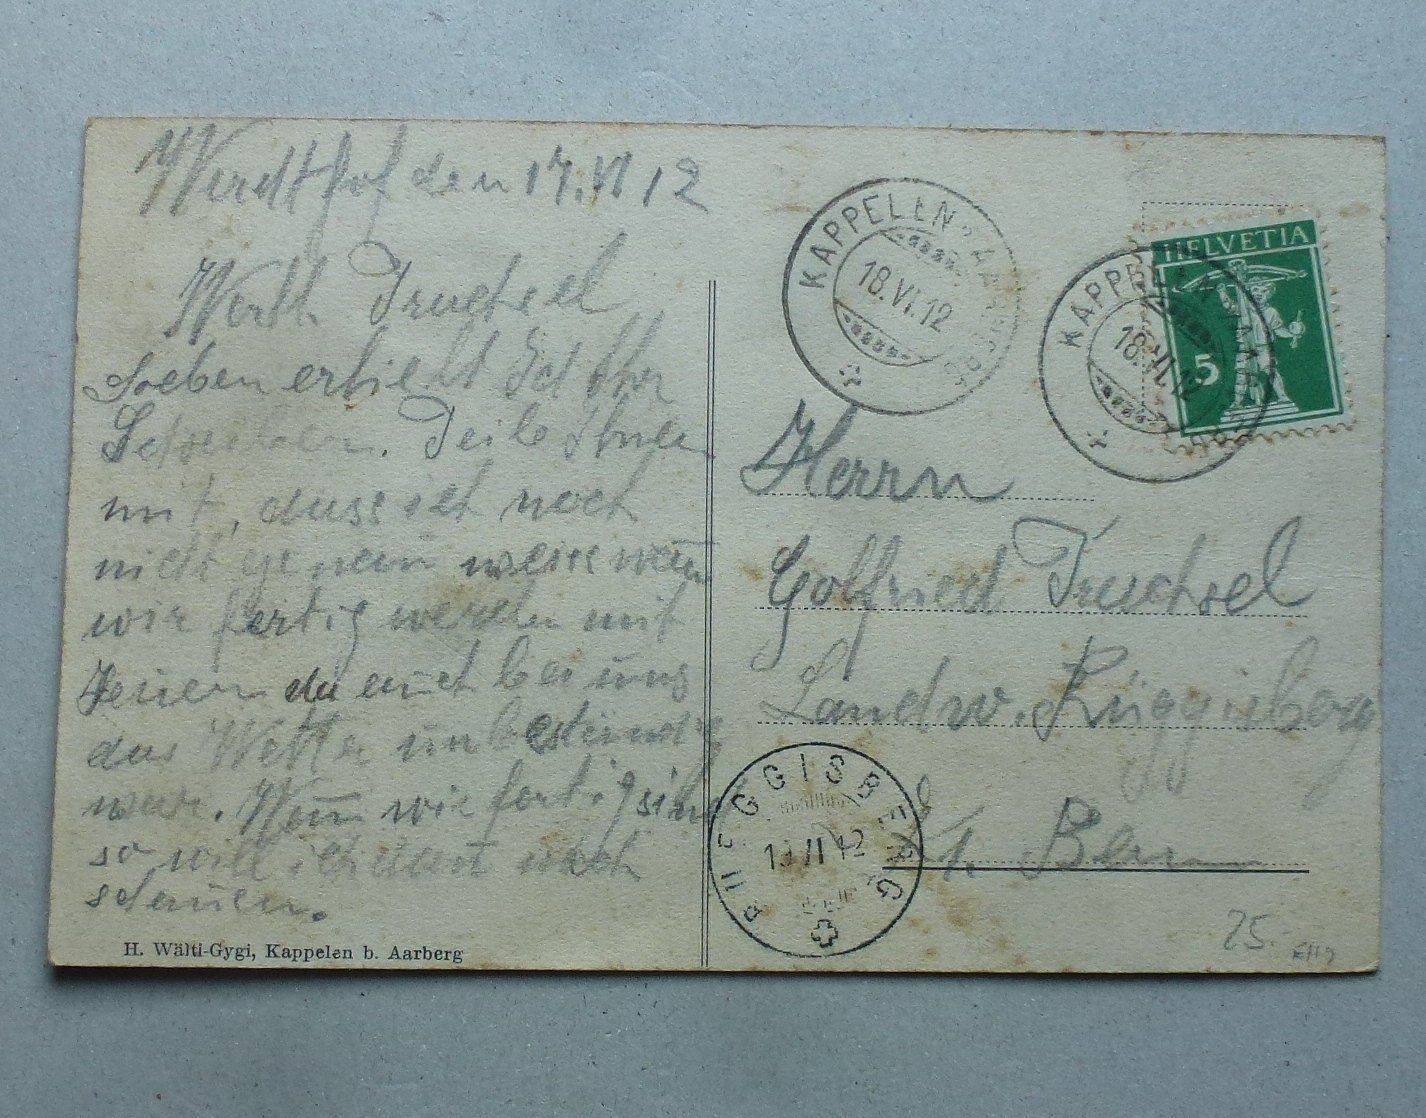 Werdthof den 17.VI 12
Werth Truchsel
Soeben erhielt Ich Ihr
Schreiben. Teile Ihnen
mit, dass ich noch
nicht genau weiss wan̄
wir fertig werden mit
Heuen da auch bei uns
das Wetter unbeständig
war. Wan̄ wir fertig sind
so will ich dan̄ nach
schauen.
H. Wälti-Gygi, Kappelen b. Aarberg
KAPPELEN (AARBERG)
18.VI.12
KAPPELEN (AARBERG)
18.VI.12
HELVETIA
5
Herrn
Gotfried Truchsel
Landw. Rüggisberg
Kt. Bern
RUEGGISBERG
12
25.-